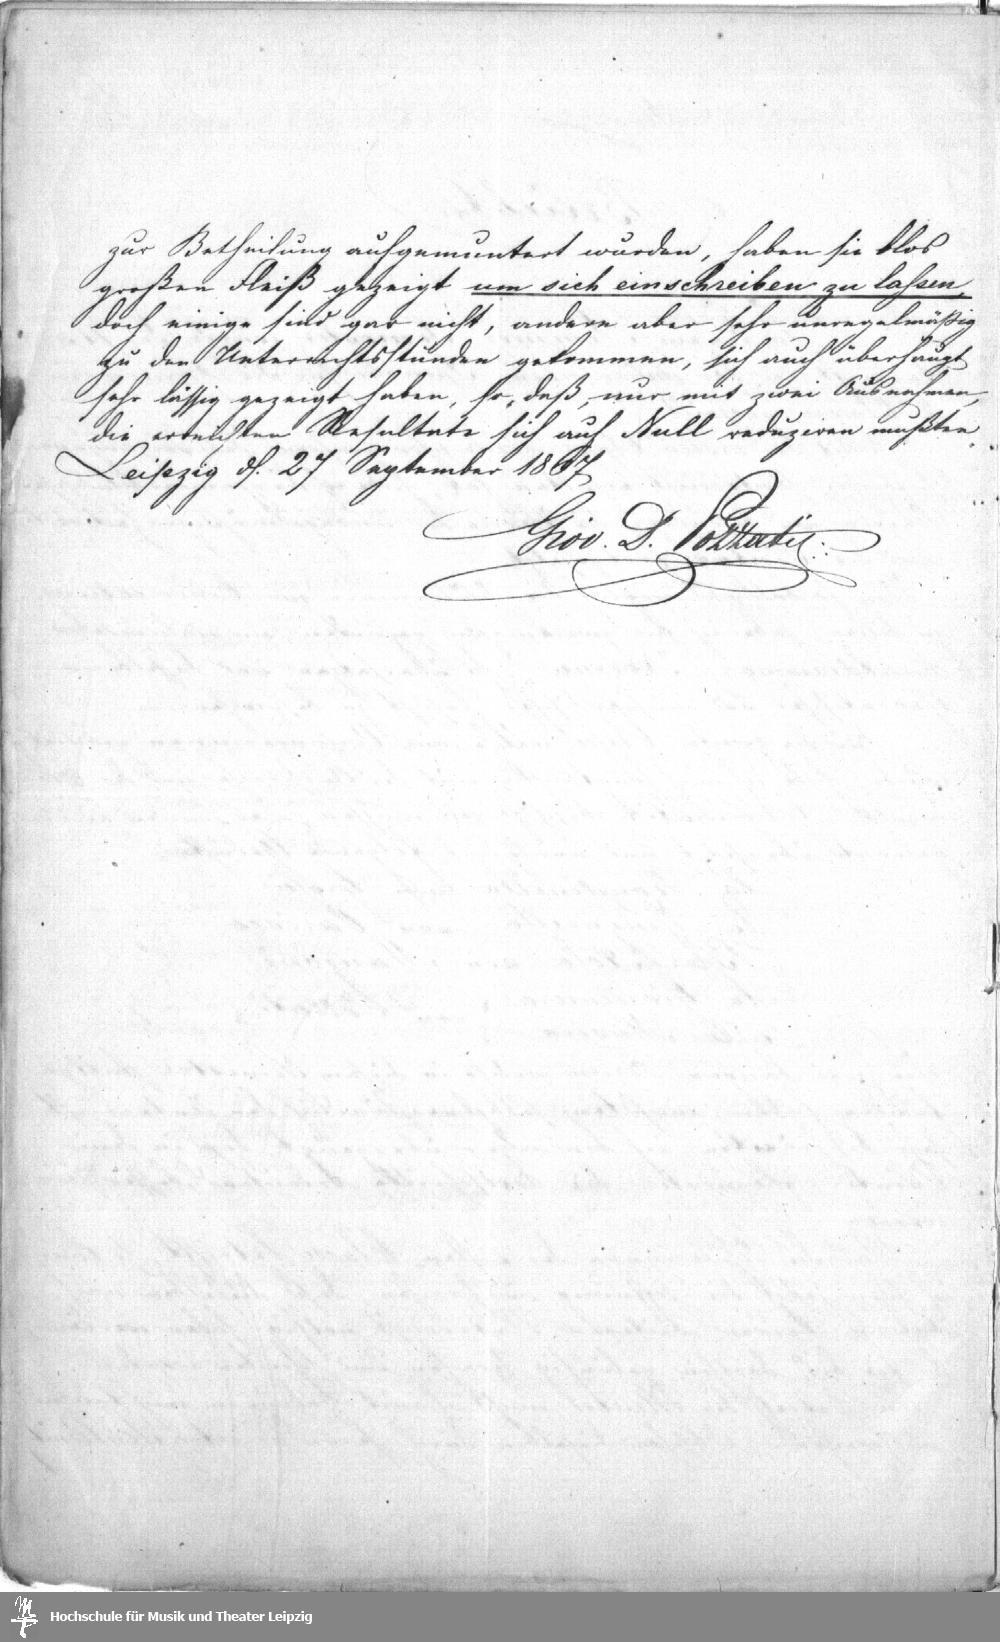 zur Betheilung aufgemuntert wurden, haben sie blos
großen Fleiß gezeigt um sich einschreiben zu lassen,
doch einige sind gar nicht, andere aber sehr unregelmäßig
zu den Unterrichtsstunden gekommen, sich auch überhaupt
sehr lässig gezeigt haben, so, daß, nur mit zwei Ausnahmen,
die erreichten Resultate sich auf Null reduziren mußten.
Leipzig d. 27 September 1867
Giov. D.
Hochschule für Musik und Theater Leipzig